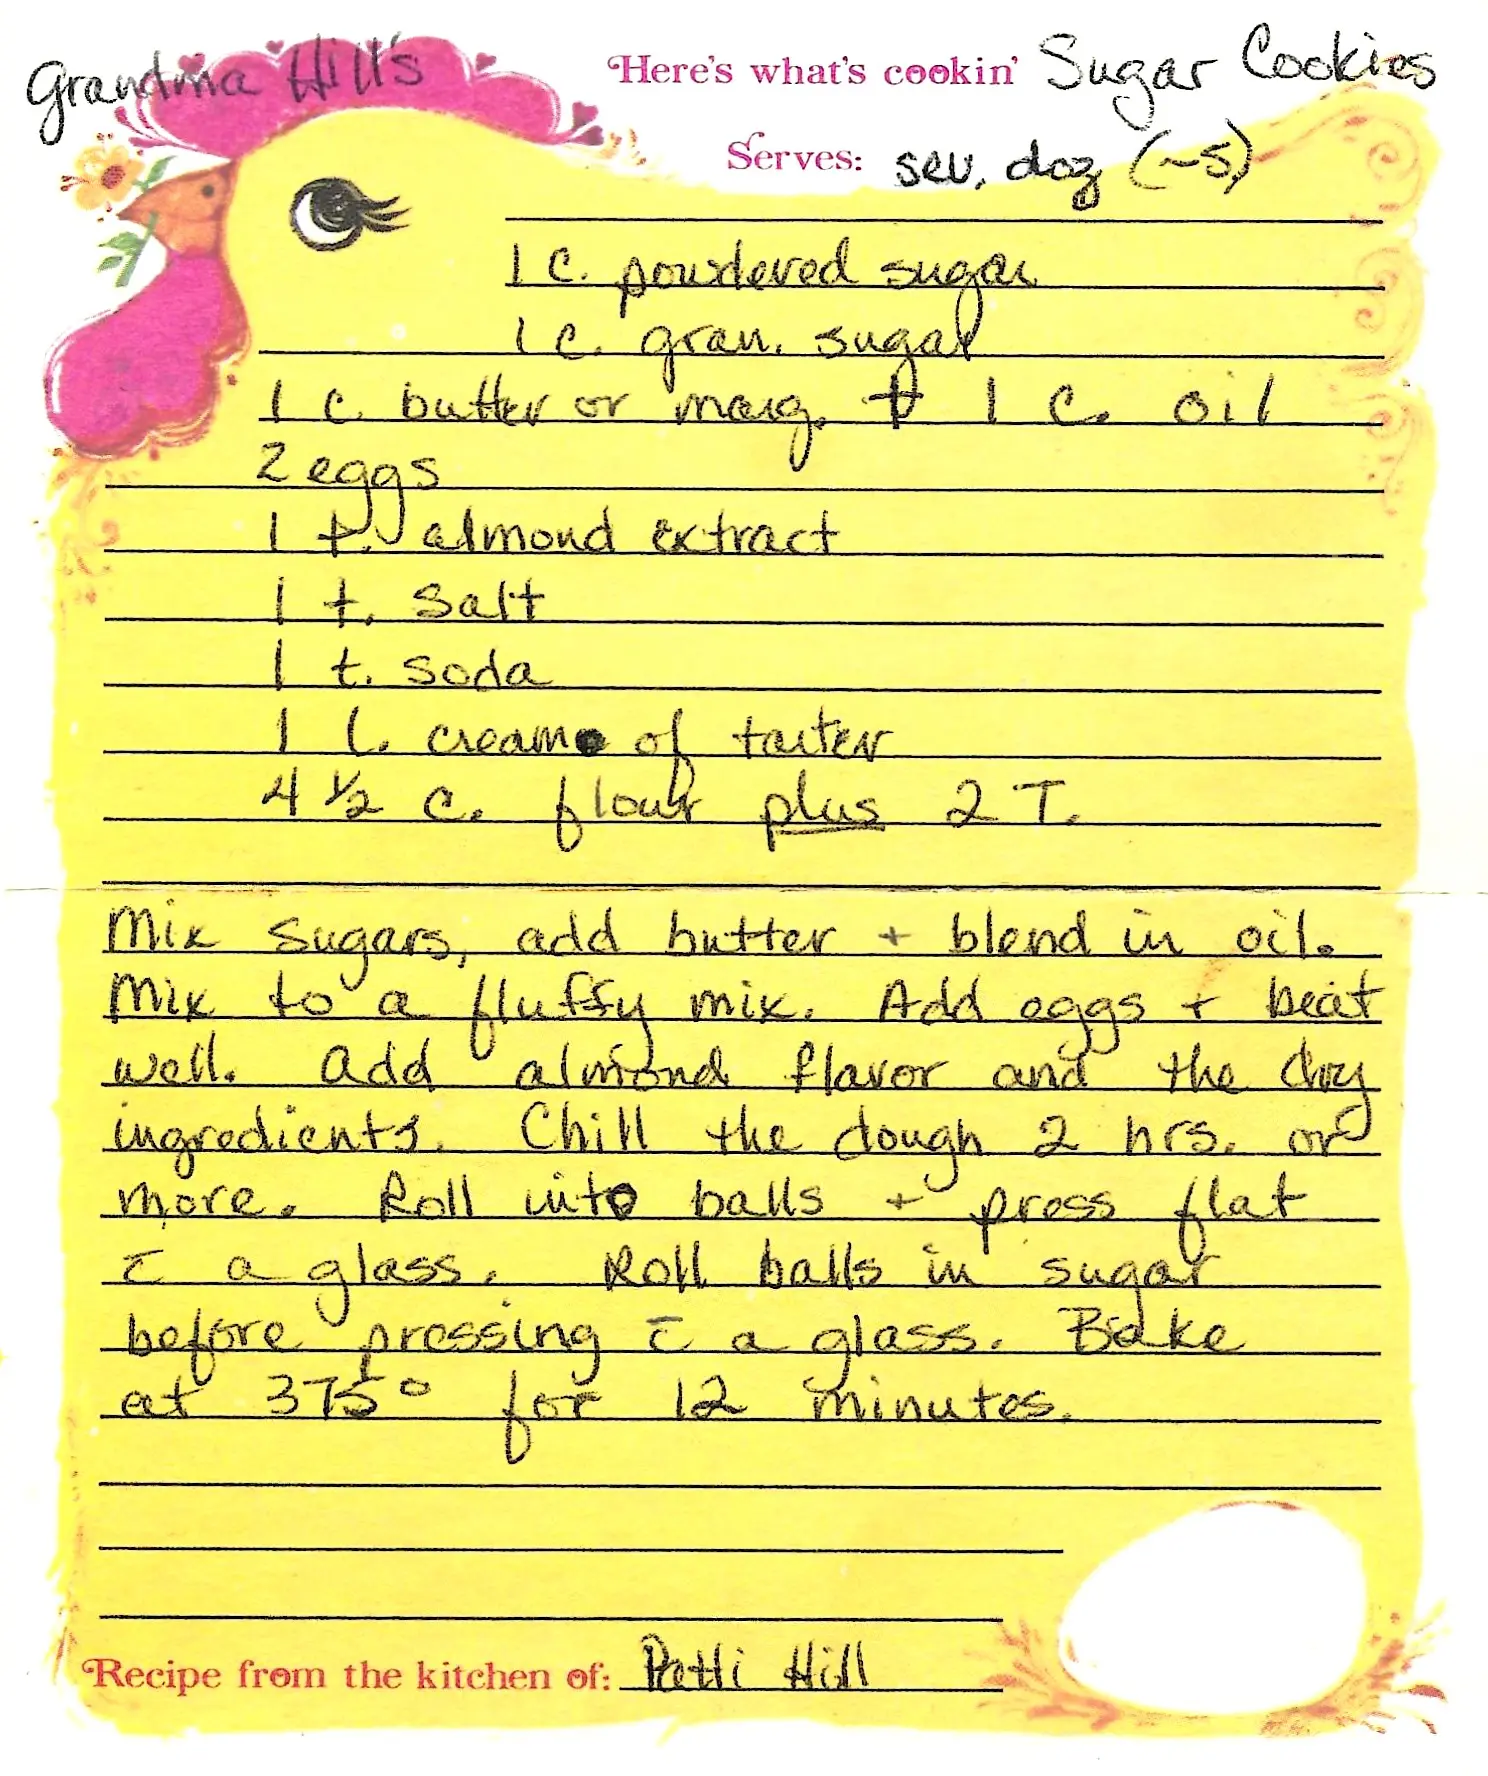 Grandma Hill's
Here's what's cookin' Sugar Cookies
Serves: sev. doz (~5)
1 c. powdered sugar
1 c. gran. sugar
1 c. butter or marg. + 1 c. oil
2 eggs
1 t. almond extract
1 t. salt
1 t. soda
1 t. cream of tarter
4 1/2 c. flour plus 2 T.
Mix sugars, add butter + blend in oil.
Mix to a fluffy mix. Add eggs + beat
well. Add almond flavor and the dry
ingredients. Chill the dough 2 hrs. or
more. Roll into balls + press flat
c̄ a glass. Roll balls in sugar
before pressing c̄ a glass. Bake
at 375° for 12 minutes.
Recipe from the kitchen of: Patti Hill